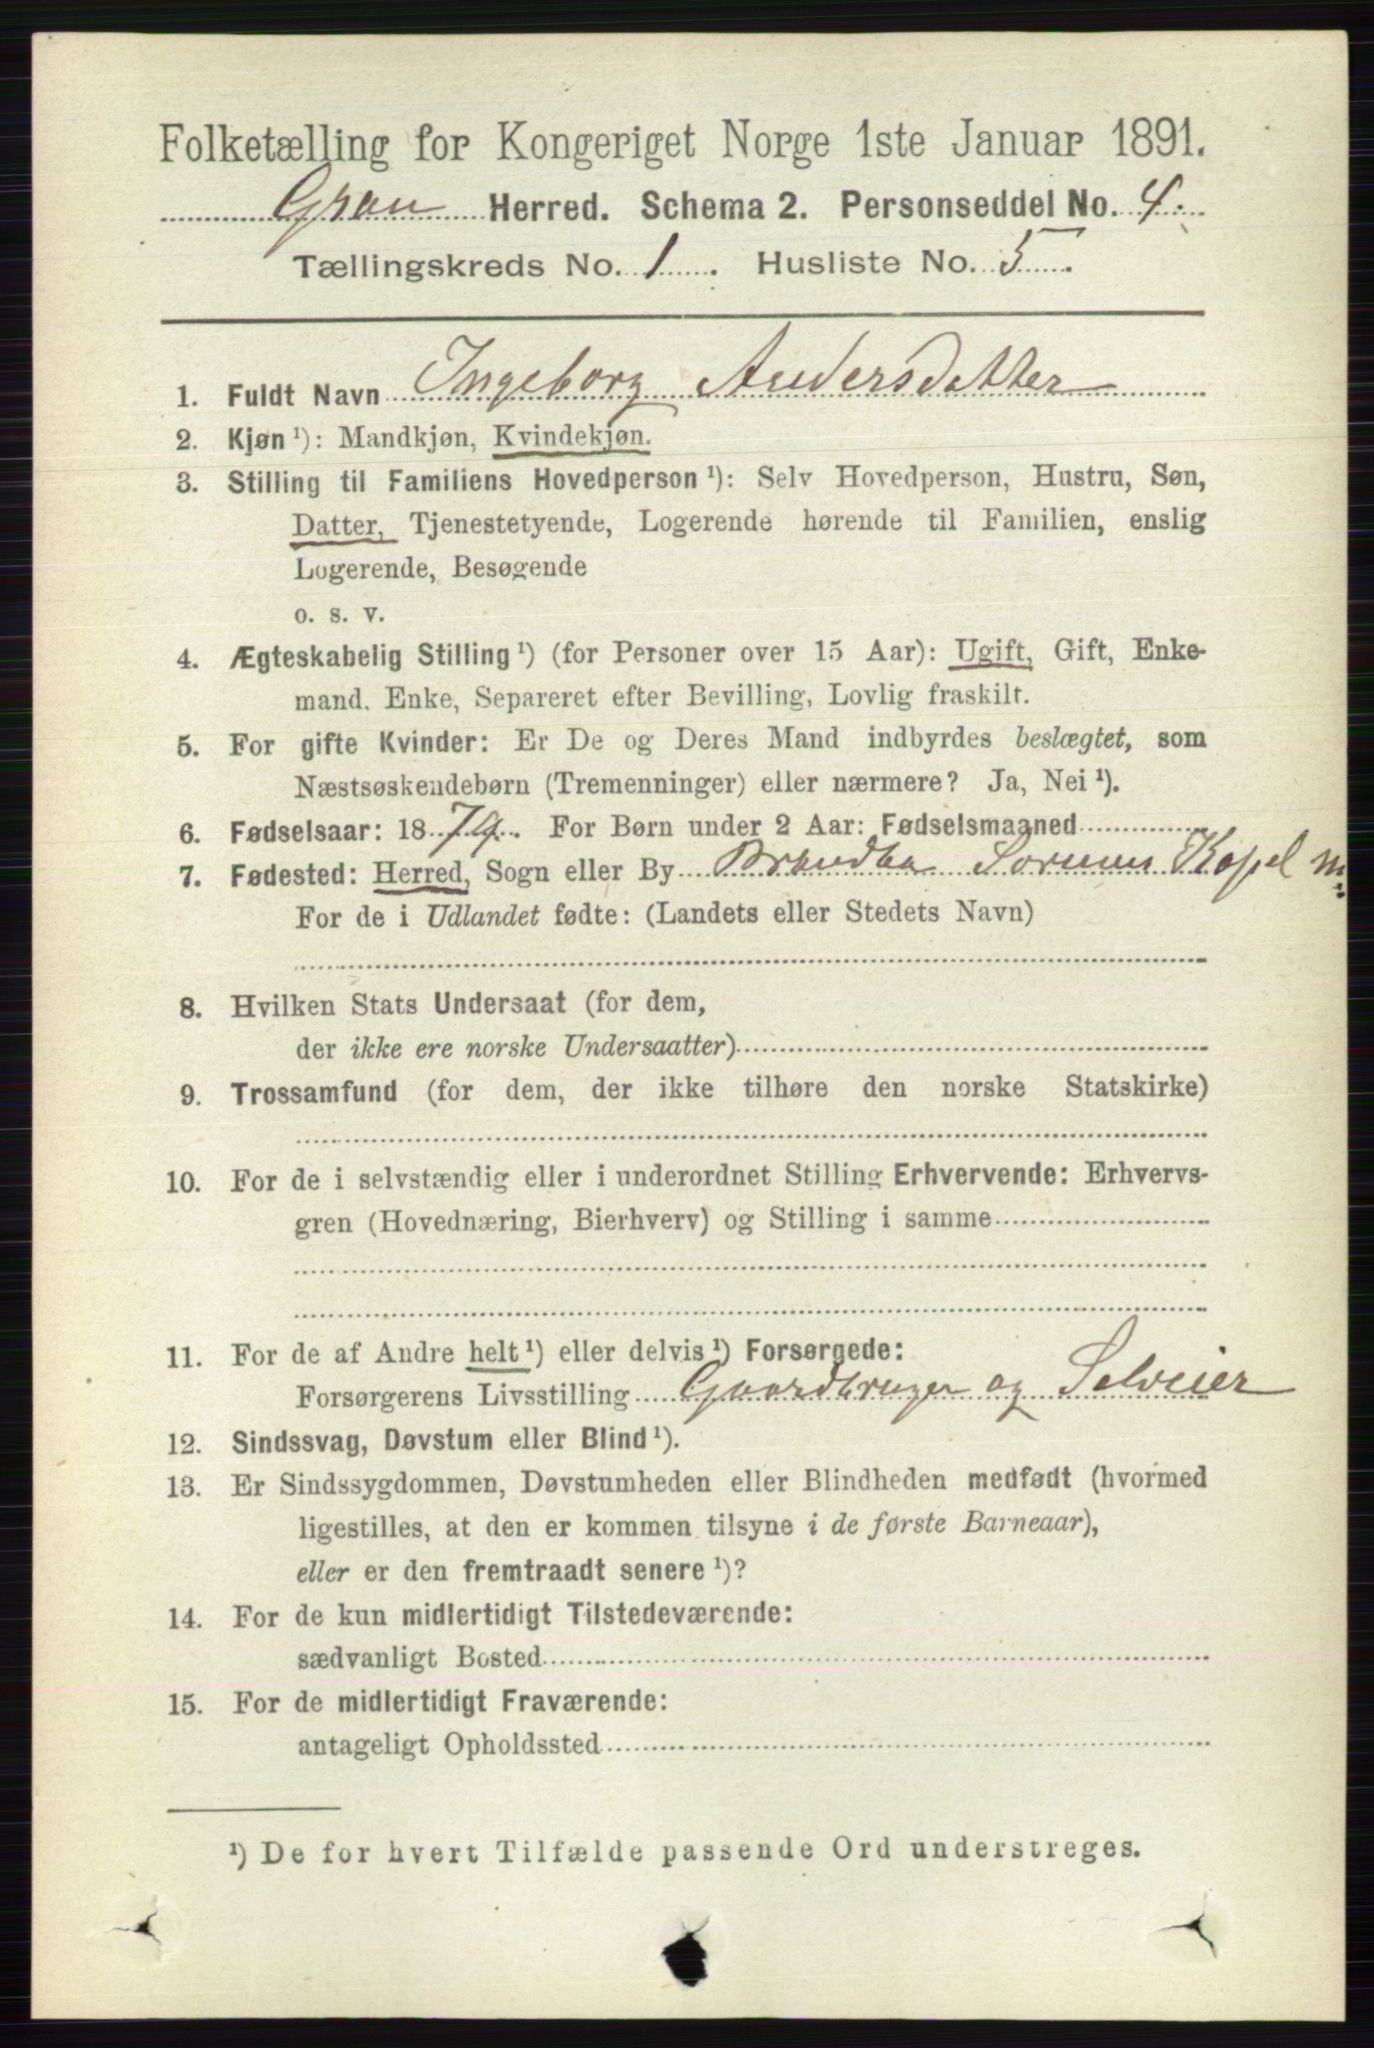 Folketælling for Kongeriget Norge 1ste Januar 1891.
Gran Herred. Schema 2. Personseddel No. 4.
Tællingskreds No. 1. Husliste No. 5.
1. Fuldt Navn Ingeborg Andersdatter
2. Kjøn ¹): Mandkjøn, Kvindekjøn.
3. Stilling til Familiens Hovedperson ¹): Selv Hovedperson, Hustru, Søn,
Datter, Tjenestetyende, Logerende hørende til Familien, enslig
Logerende, Besøgende
o. s. v.
4. Ægteskabelig Stilling ¹) (for Personer over 15 Aar): Ugift, Gift, Enke-
mand. Enke, Separeret efter Bevilling, Lovlig fraskilt.
5. For gifte Kvinder: Er De og Deres Mand indbyrdes beslægtet, som
Næstsøskendebørn (Tremenninger) eller nærmere? Ja, Nei ¹).
6. Fødselsaar: 1879. For Børn under 2 Aar: Fødselsmaaned
7. Fødested: Herred, Sogn eller By Brandbu Sørum Kapel
For de i Udlandet fødte: (Landets eller Stedets Navn)
8. Hvilken Stats Undersaat (for dem,
der ikke ere norske Undersaatter)
9. Trossamfund (for dem, der ikke tilhøre den norske Statskirke)
10. For de i selvstændig eller i underordnet Stilling Erhvervende: Erhvervs-
gren (Hovednæring, Bierhverv) og Stilling i samme
11. For de af Andre helt ¹) eller delvis ¹) Forsørgede:
Forsørgerens Livsstilling Gaardbruger og Selveier
12. Sindssvag, Døvstum eller Blind ¹).
13. Er Sindssygdommen, Døvstumheden eller Blindheden medfødt (hvormed
ligestilles, at den er kommen tilsyne i de første Barneaar),
eller er den fremtraadt senere ¹)?
14. For de kun midlertidigt Tilstedeværende:
sædvanligt Bosted
15. For de midlertidigt Fraværende:
antageligt Opholdssted
¹) De for hvert Tilfælde passende Ord understreges.